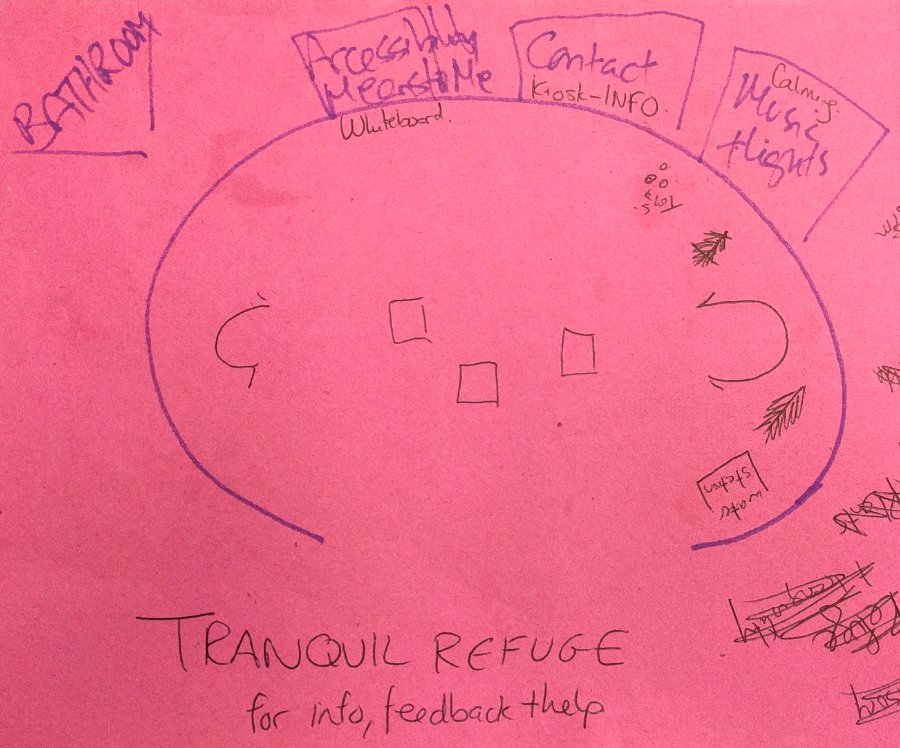 BATHROOM
Accessibility
Means to Me
Whiteboard.
Contact
Kiosk-INFO.
Calming
Music
+lights
Toys
water
station
TRANQUIL REFUGE
for info, feedback +help